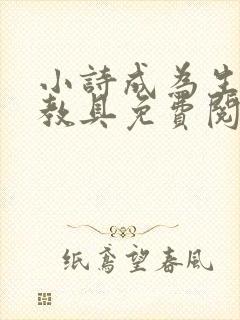 小詩成為生
教具免費閱
纸鸢望春風